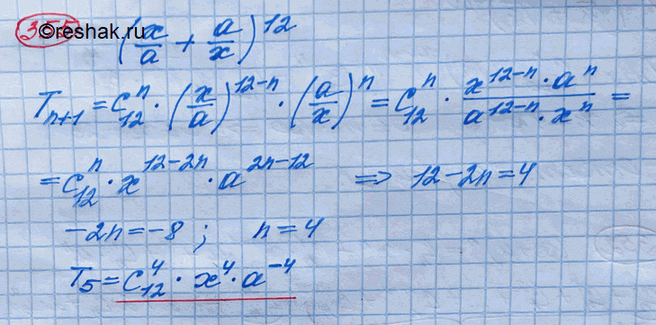 355 ©reshak.ru (x/a + a/x)^12
T_{n+1} = C_12^n · (x/a)^{12-n} · (a/x)^n = C_12^n · (x^{12-n} · a^n)/(a^{12-n} · x^n) =
= C_12^n · x^{12-2n} · a^{2n-12} ⇒ 12-2n=4
-2n=-8 ; n=4
T_5 = C_12^4 · x^4 · a^{-4}